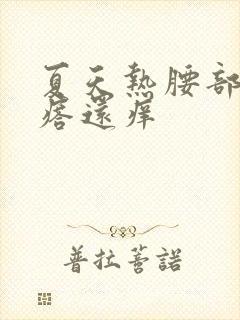 夏天熱腰部
痞還痒
普拉薈諾